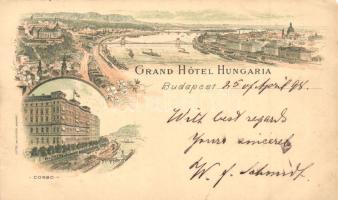 GRAND HÔTEL HUNGARIA
Budapest 25 of April 98.
With best regards
Yours sincerely
W. f. Schmidt.
- CORSO -